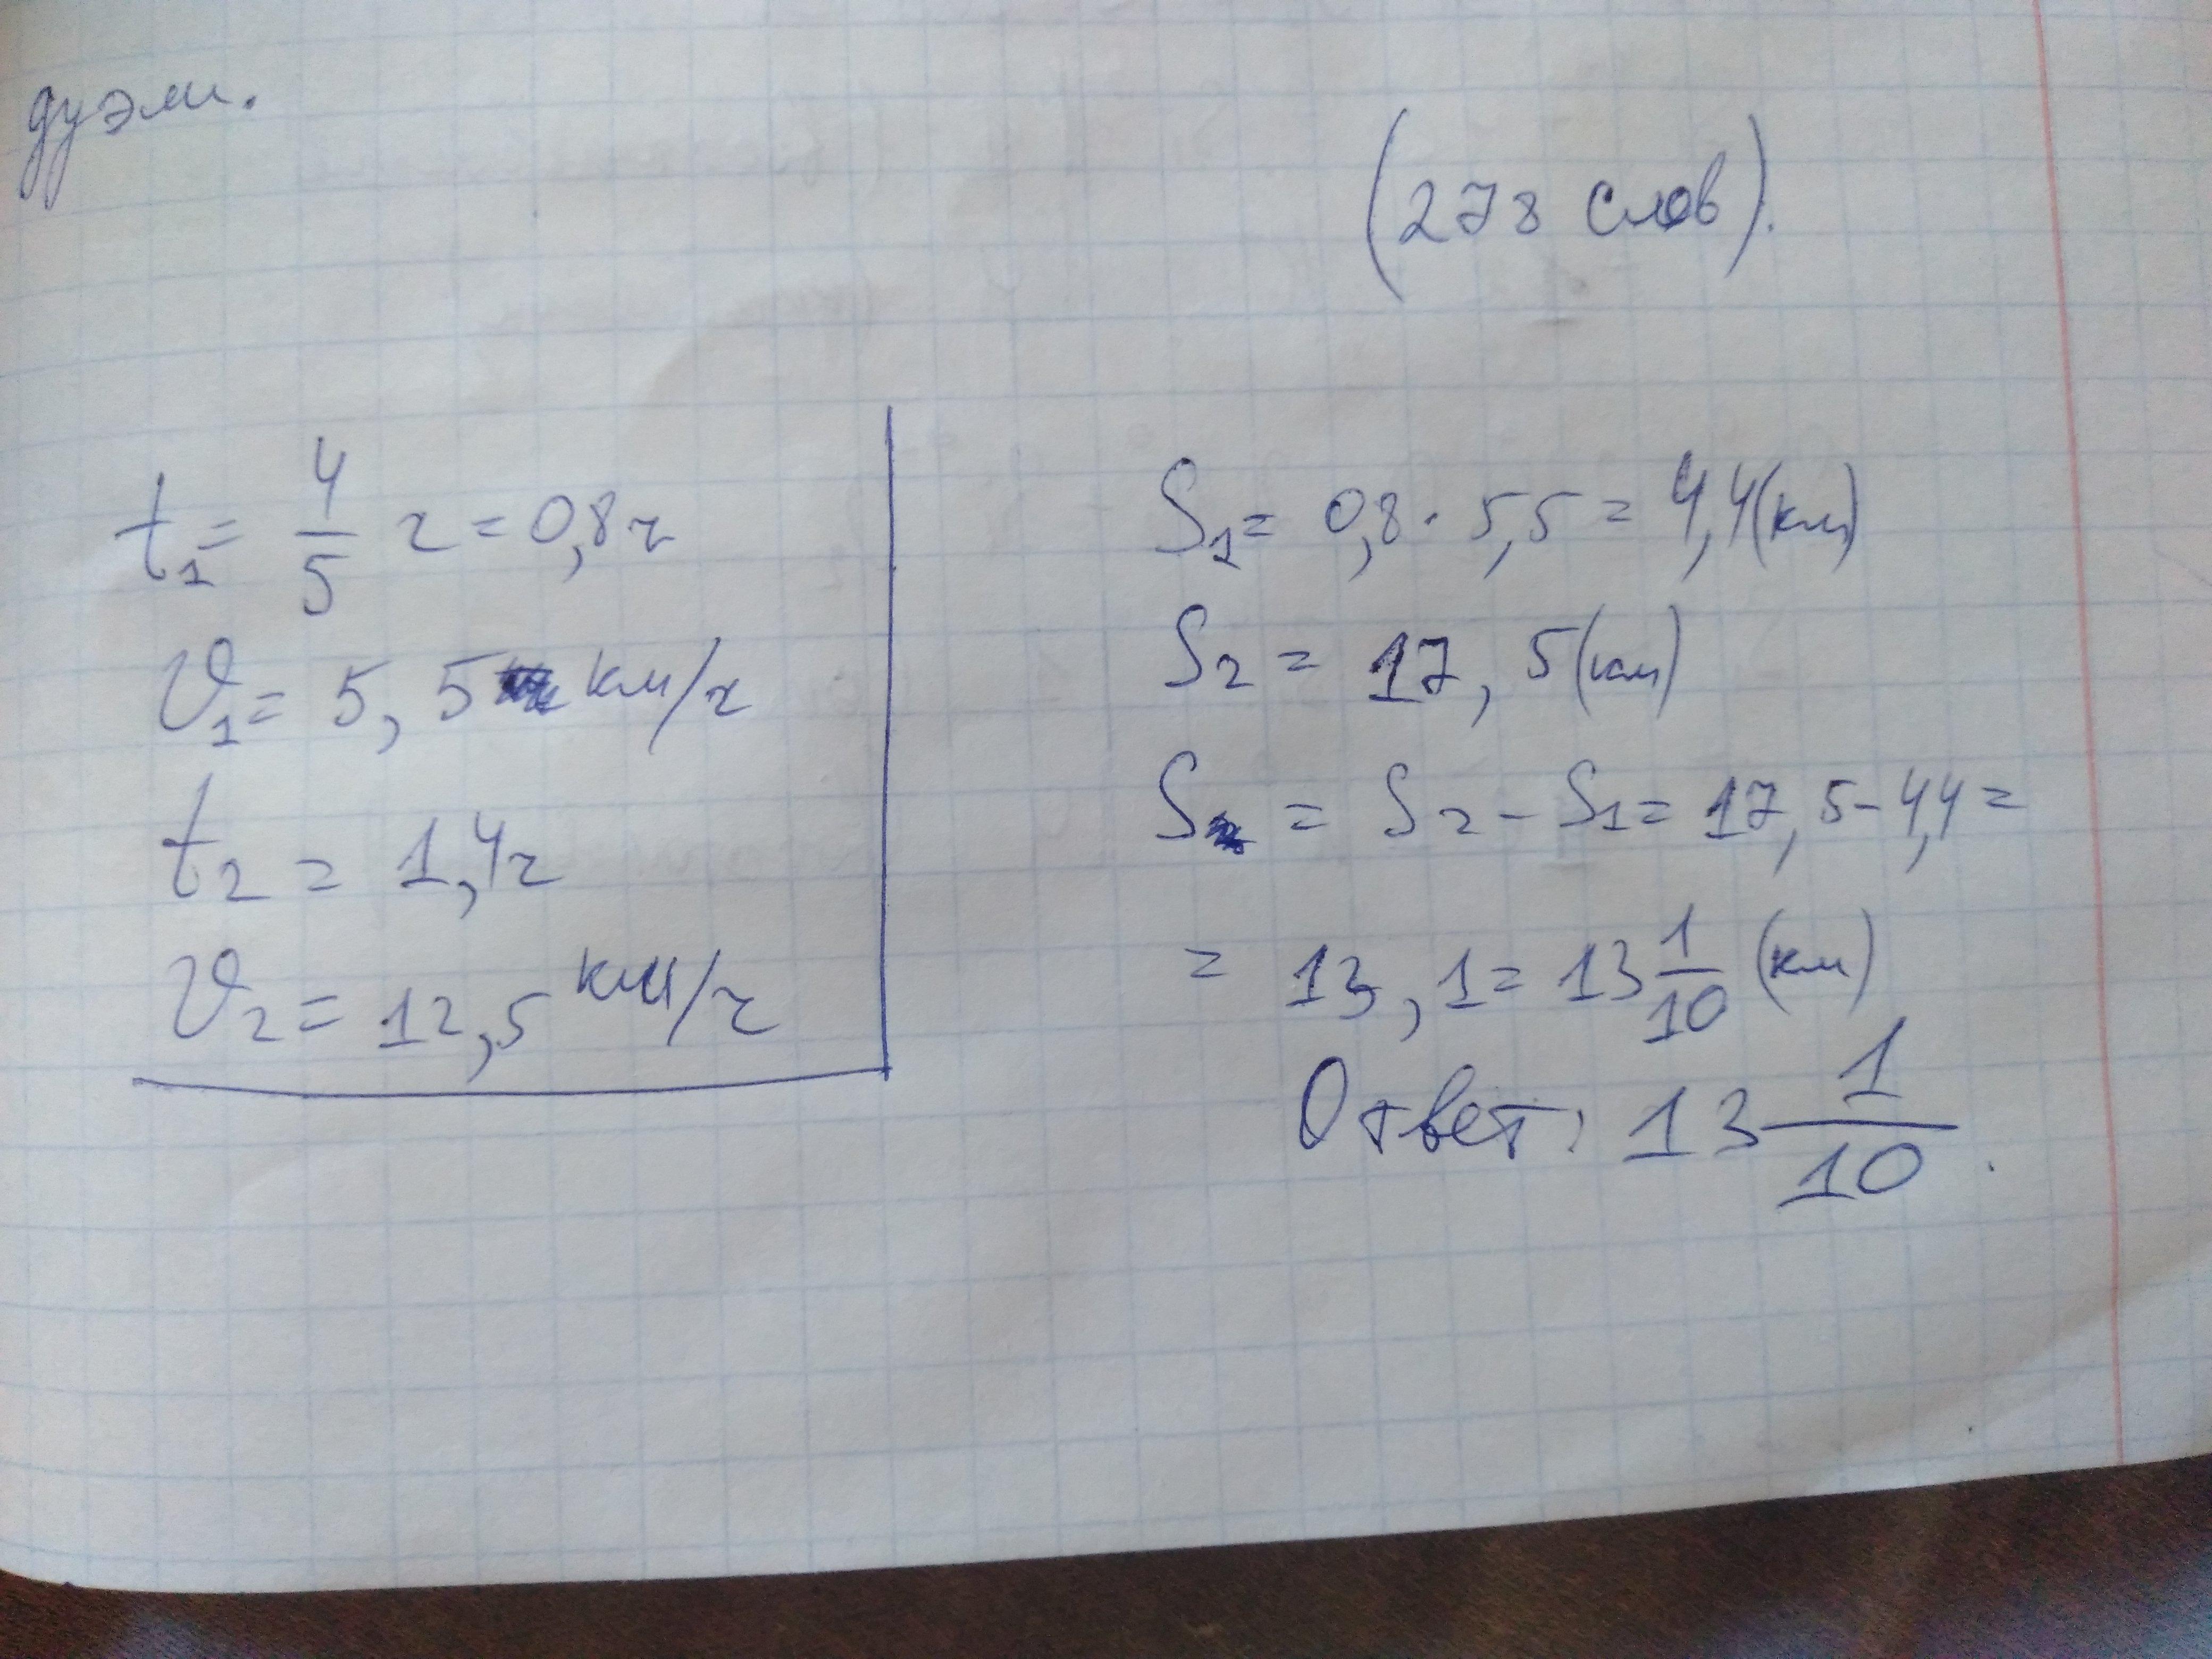 дуэли.
(278 слов).
t₁ = 4/5 ч = 0,8 ч
υ₁ = 5,5 км/ч
t₂ = 1,4 ч
υ₂ = 12,5 км/ч
S₁ = 0,8 · 5,5 = 4,4 (км)
S₂ = 17,5 (км)
S = S₂ - S₁ = 17,5 - 4,4 =
= 13,1 = 13 1/10 (км)
Ответ: 13 1/10.